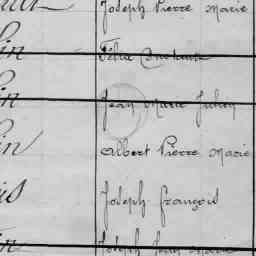 Joseph Pierre Marie
lin Félix Constant
lin Jean Marie Julien
lin Albert Pierre Marie
is Joseph François
in Joseph Jean Marie